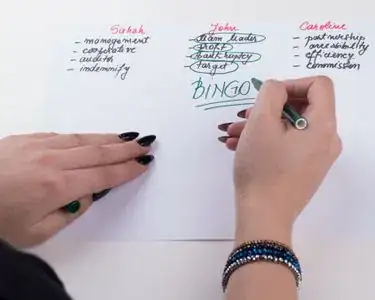 Sarah
- management
- cooperative
- auditor
- indemnify
John
- team leader
- profit
- bankruptcy
- target
BINGO
Caroline
- partnership
- accessibility
- efficiency
- commission